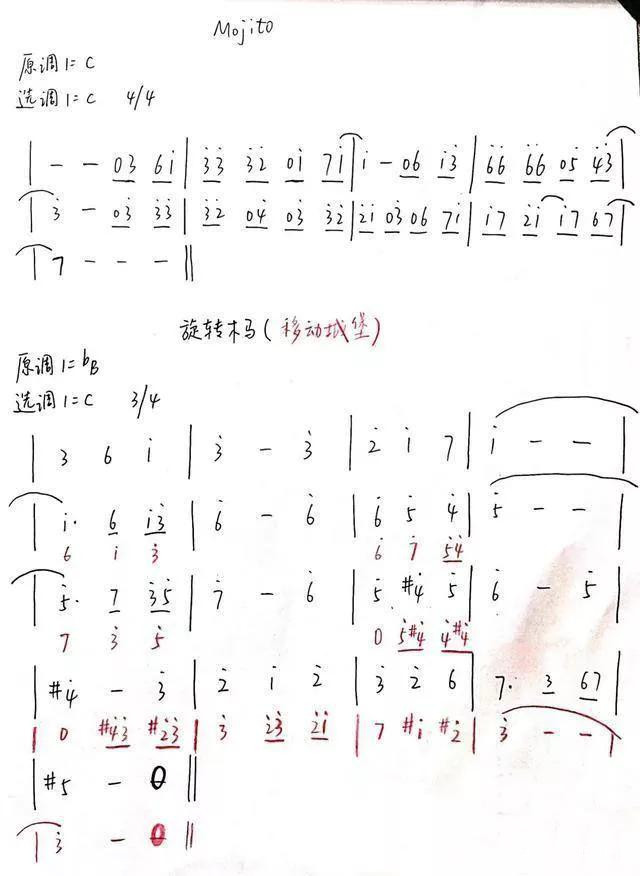 Mojito
原调 1=C
选调 1=C 4/4
| - - 03̇ 6i̇ | 3̇3̇ 3̇2̇ 0i̇ 7i̇ | i̇ - 06 i̇3̇ | 6̇6̇ 6̇6̇ 05̇ 4̇3̇ |
| 3̇ - 03̇ 3̇3̇ | 3̇2̇ 04̇ 03̇ 3̇2̇ | 2̇i̇ 03̇ 06 7i̇ | i̇7 2̇i̇ i̇7 67 |
| 7 - - - ||
旋转木马(移动城堡)
原调 1=bB
选调 1=C 3/4
| 3 6 i̇ | 3̇ - 3̇ | 2̇ i̇ 7 | i̇ - - |
| i̇· 6 i̇3̇ | 6̇ - 6̇ | 6̇ 5̇ 4̇ | 5̇ - - |
6 i̇ 3̇ 6̇ 7̇ 5̇4̇
| 5̇· 7 3̇5̇ | 7̇ - 6̇ | 5̇ #4̇ 5̇ | 6̇ - 5̇ |
7 3̇ 5̇ 0 5̇#4̇ 4̇#4̇
| #4̇ - 3̇ | 2̇ i̇ 2̇ | 3̇ 2̇ 6 | 7· 3 67 |
| 0 #4̇3̇ #2̇3̇ | 3̇ 2̇3̇ 2̇i̇ | 7 #i̇ #2̇ | 3̇ - - |
| #5 - 0 ||
| 3̇ - 0 ||